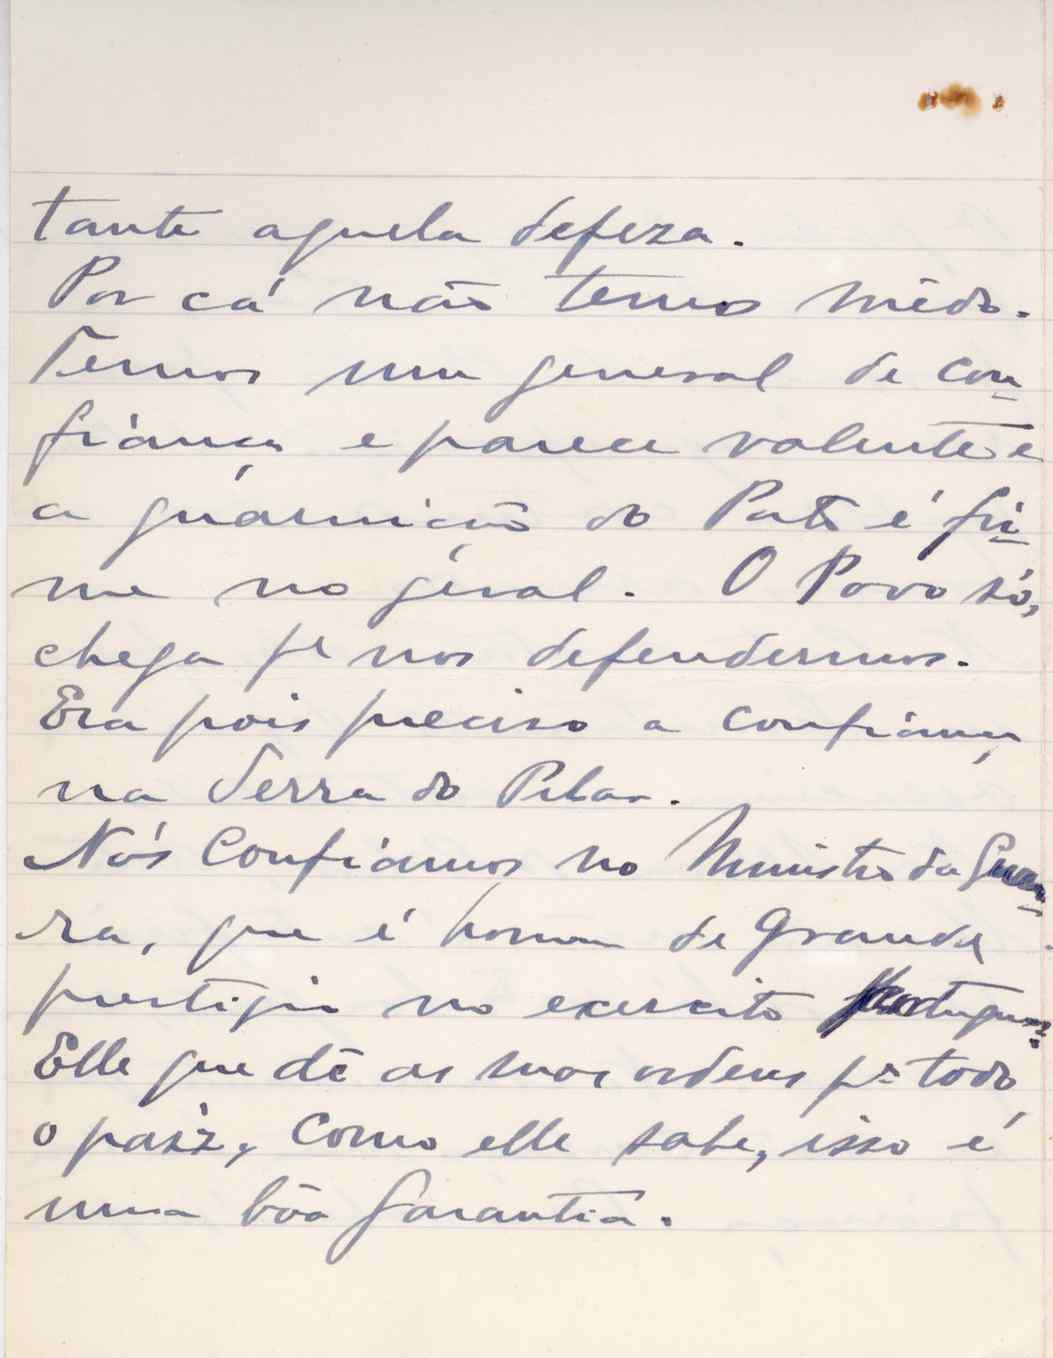 tante aquela defeza.
Por cá não temos mêdo.
Temos um general de con-
fiança e parece valente e
a guarnição do Porto é fir-
me no géral. O Povo só,
chega pª nos defendermos.
Era pois preciso a confiança
na Serra do Pilar.
Nós Confiamos no Ministro da Guer-
ra, que é homem de Grande
prestigio no exercito Portuguez.
Elle que dê as suas ordens pª todo
o paiz, como elle sabe, isso é
uma bôa Garantia.